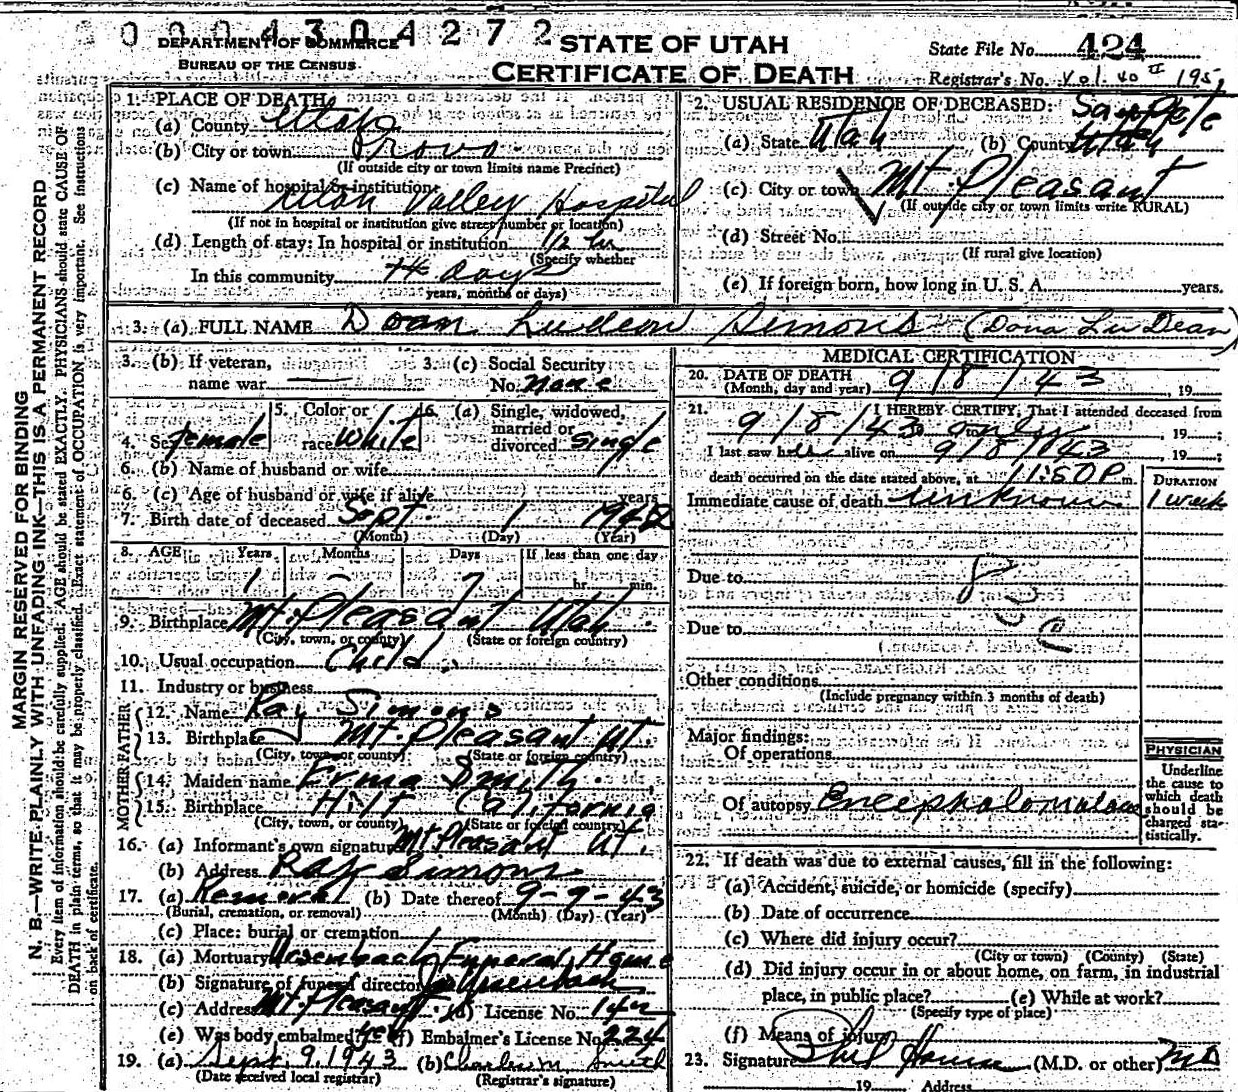 0004304272
DEPARTMENT OF COMMERCE
BUREAU OF THE CENSUS
STATE OF UTAH
CERTIFICATE OF DEATH
State File No. 424
Registrar's No. Vol. 40 II 195
MARGIN RESERVED FOR BINDING
N. B.—WRITE PLAINLY WITH UNFADING INK—THIS IS A PERMANENT RECORD
Every item of information should be carefully supplied. AGE should be stated EXACTLY. PHYSICIANS should state CAUSE OF
DEATH in plain terms, so that it may be properly classified. Exact statement of OCCUPATION is very important. See instructions
on back of certificate.
1. PLACE OF DEATH
(a) County Utah
(b) City or town Provo
(If outside city or town limits name Precinct)
(c) Name of hospital or institution:
Utah Valley Hospital
(If not in hospital or institution give street number or location)
(d) Length of stay: In hospital or institution 1/2 hr
(Specify whether
In this community days
years, months or days)
2. USUAL RESIDENCE OF DECEASED: Sanpete
(a) State Utah (b) County Utah
(c) City or town Mt. Pleasant
(If outside city or town limits write RURAL)
(d) Street No.
(If rural give location)
(e) If foreign born, how long in U. S. A. years.
3. (a) FULL NAME Doan Ludean Simons (Dona Lu Dean)
3. (b) If veteran, name war
3. (c) Social Security No. None
4. Sex female 5. Color or race White 6. (a) Single, widowed, married or divorced single
6. (b) Name of husband or wife
6. (c) Age of husband or wife if alive years
7. Birth date of deceased Sept. 1 1942
(Month) (Day) (Year)
8. AGE Years Months Days If less than one day
1 - 7 hr. min.
9. Birthplace Mt. Pleasant Utah.
(City, town, or county) (State or foreign country)
10. Usual occupation Child.
11. Industry or business
FATHER
12. Name Ray Simons
13. Birthplace Mt. Pleasant Ut.
(City, town, or county) (State or foreign country)
MOTHER
14. Maiden name Erma Smith.
15. Birthplace Hilt California
(City, town, or county) (State or foreign country)
16. (a) Informant's own signature Mt Pleasant Ut.
(b) Address Ray Simons
17. (a) Removal (b) Date thereof 9-9-43
(Burial, cremation, or removal) (Month) (Day) (Year)
(c) Place: burial or cremation
18. (a) Mortuary Ursenbach Funeral Home
(b) Signature of funeral director Ursenbach
(c) Address Mt. Pleasant. (d) License No. 142
(e) Was body embalmed yes (f) Embalmer's License No. 224
19. (a) Sept. 9, 1943 (b) Charles M. Smith
(Date received local registrar) (Registrar's signature)
MEDICAL CERTIFICATION
20. DATE OF DEATH
(Month, day and year) 9/8/43, 19
21. I HEREBY CERTIFY, That I attended deceased from
9/8/43 to only, 19;
I last saw her alive on 9/8/43, 19;
death occurred on the date stated above, at 11:50 P.m.
DURATION
Immediate cause of death unknown 1 week
Due to
Due to
Other conditions
(Include pregnancy within 3 months of death)
Major findings:
Of operations
Of autopsy Encephalomalacia
PHYSICIAN
Underline
the cause to
which death
should be
charged sta-
tistically.
22. If death was due to external causes, fill in the following:
(a) Accident, suicide, or homicide (specify)
(b) Date of occurrence
(c) Where did injury occur?
(City or town) (County) (State)
(d) Did injury occur in or about home, on farm, in industrial
place, in public place? (e) While at work?
(Specify type of place)
(f) Means of injury
23. Signature (M.D. or other) MD
19 Address